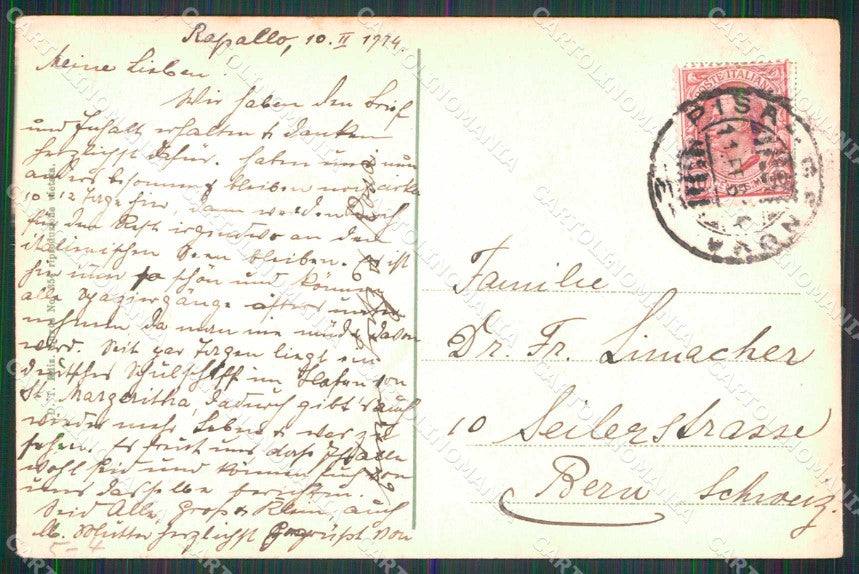 Rapallo, 10. II 1914.
Meine Lieben!
Wir haben den Brief
und Inhalt erhalten & danken
herzlichst dafür. Haben uns nun
anders besonnen & bleiben noch circa
10-12 Tage hier, dann werden wir
für den Rest irgendwo an den
italienischen Seen bleiben. Es ist
hier immer so schön und können
alle Spaziergänge öfters unter-
nehmen, da man nie müde davon
wird. Seit paar Tagen liegt ein
deutsches Schulschiff im Hafen von
St. Margeritha, dadurch gibt's auch
wieder mehr Leben & was zu
sehen. Es freut uns dass Ihr alle
wohl seid und können Euch von
uns dasselbe berichten.
Seid Alle, Gross & Klein, auch
M. Mutter herzlichst gegrüsst von
Rosa
POSTE ITALIANE
PISA GENOVA
Familie
Dr. Fr. Limacher
10 Seilerstrasse
Bern Schweiz.
5-4
CARTOLINOMANIA